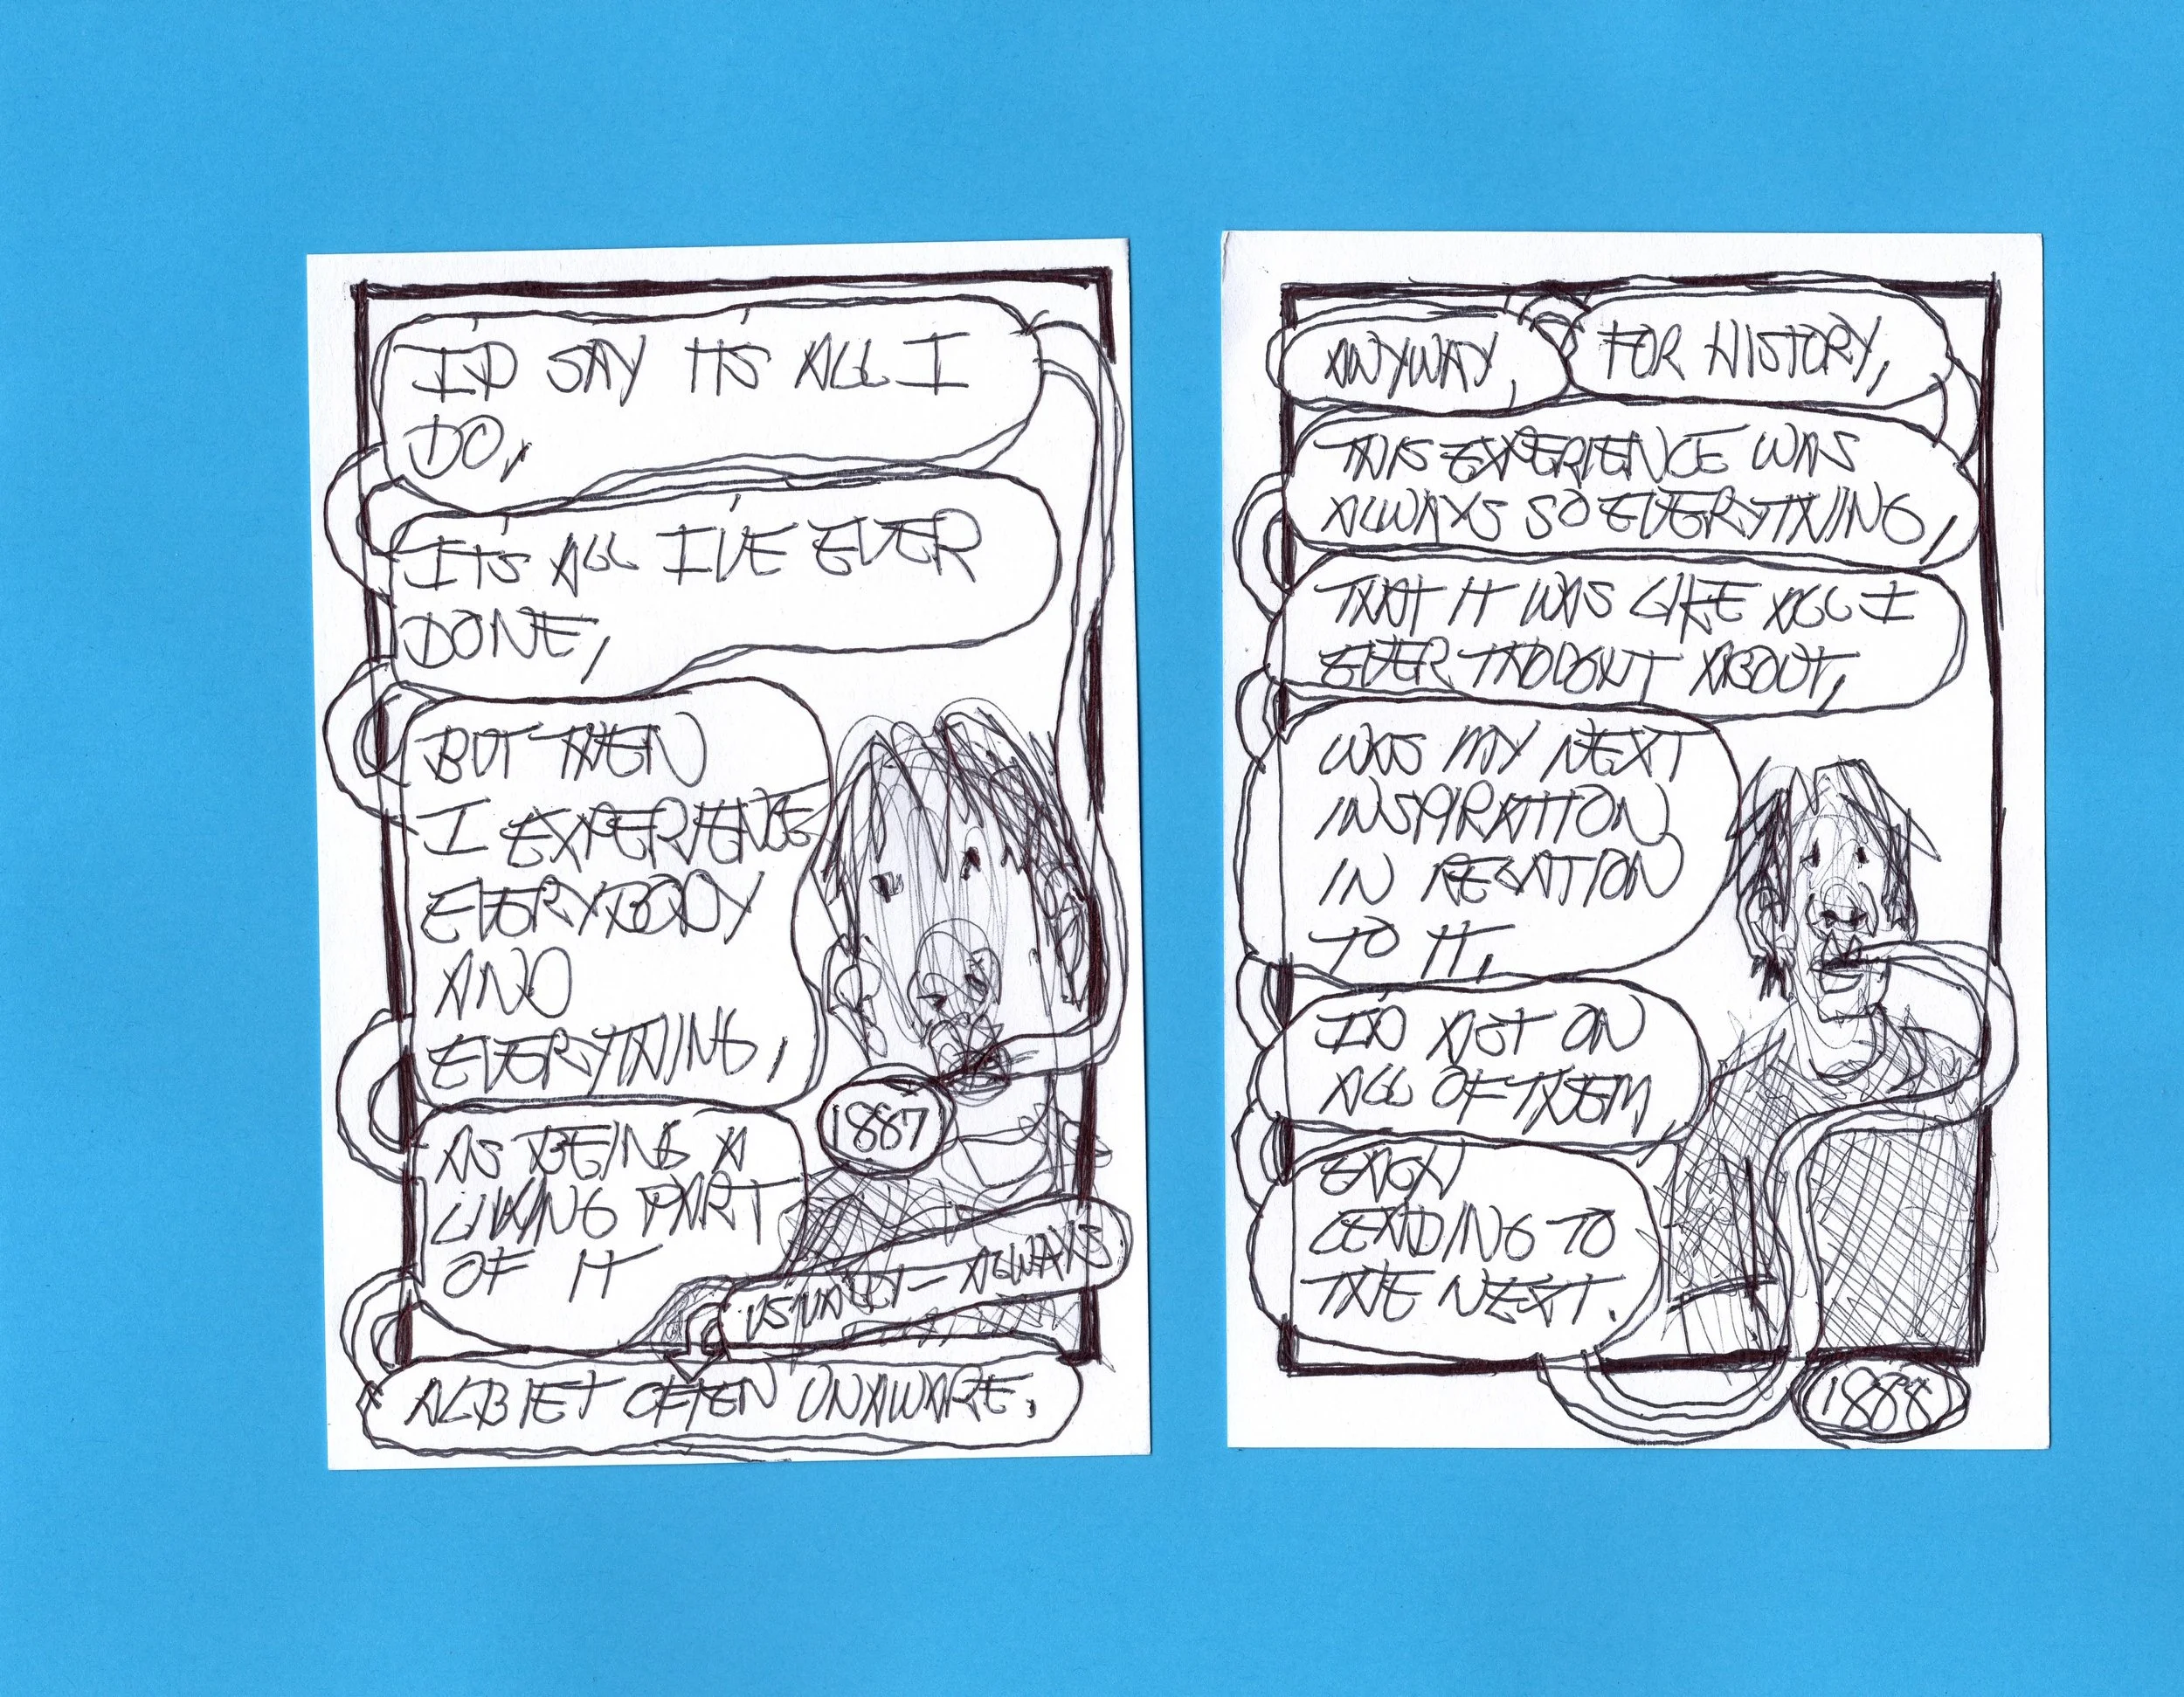 I'D SAY IT'S ALL I
DO,
IT'S ALL I'VE EVER
DONE,
BUT THEN
I EXPERIENCE
EVERYBODY
AND
EVERYTHING,
AS BEING A
LIVING PART
OF IT
USUALLY – ALWAYS
ALBIET OFTEN UNAWARE.
1887
ANYWAY,
FOR HISTORY,
THIS EXPERIENCE WAS
ALWAYS SO EVERYTHING,
THAT IT WAS LIKE ALL I
EVER THOUGHT ABOUT,
WAS MY NEXT
INSPIRATION
IN RELATION
TO IT,
I'D ACT ON
ALL OF THEM,
EACH
LEADING TO
THE NEXT.
1888